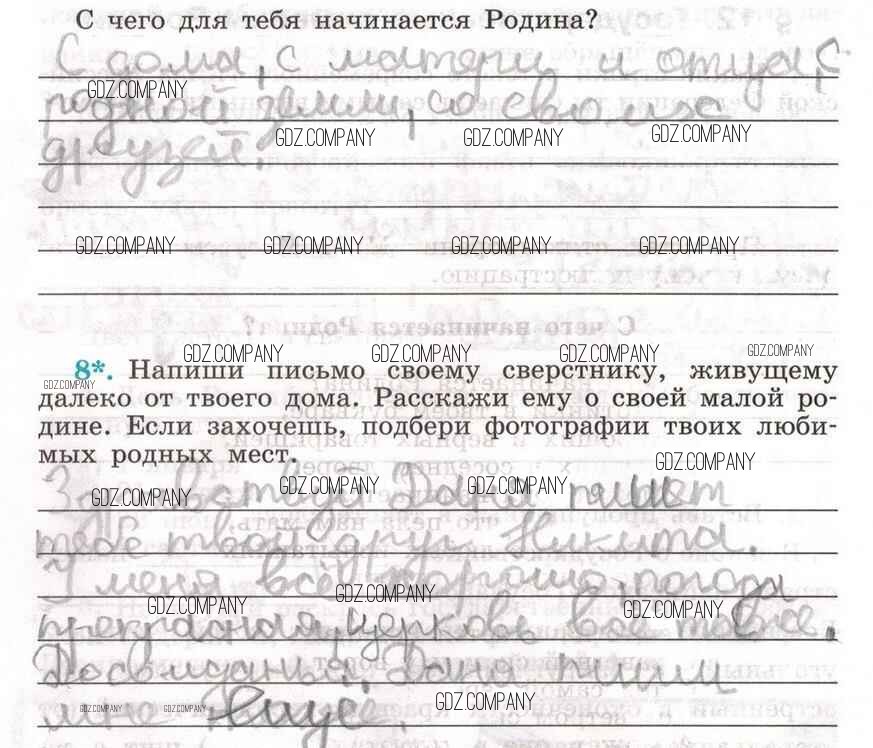 С чего для тебя начинается Родина?
С дома, с матери и отца, с
GDZ.COMPANY
родной земли, со своих
GDZ.COMPANY GDZ.COMPANY GDZ.COMPANY
друзей.
GDZ.COMPANY GDZ.COMPANY GDZ.COMPANY GDZ.COMPANY
GDZ.COMPANY GDZ.COMPANY GDZ.COMPANY GDZ.COMPANY
8*. Напиши письмо своему сверстнику, живущему
GDZ.COMPANY
далеко от твоего дома. Расскажи ему о своей малой ро-
дине. Если захочешь, подбери фотографии твоих люби-
мых родных мест.
GDZ.COMPANY
пишет
GDZ.COMPANY GDZ.COMPANY GDZ.COMPANY
тебе твой друг Никита.
У меня всё хорошо, погода
GDZ.COMPANY GDZ.COMPANY GDZ.COMPANY
прекрасная, церковь
Досвидания, пиши
GDZ.COMPANY GDZ.COMPANY GDZ.COMPANY
мне